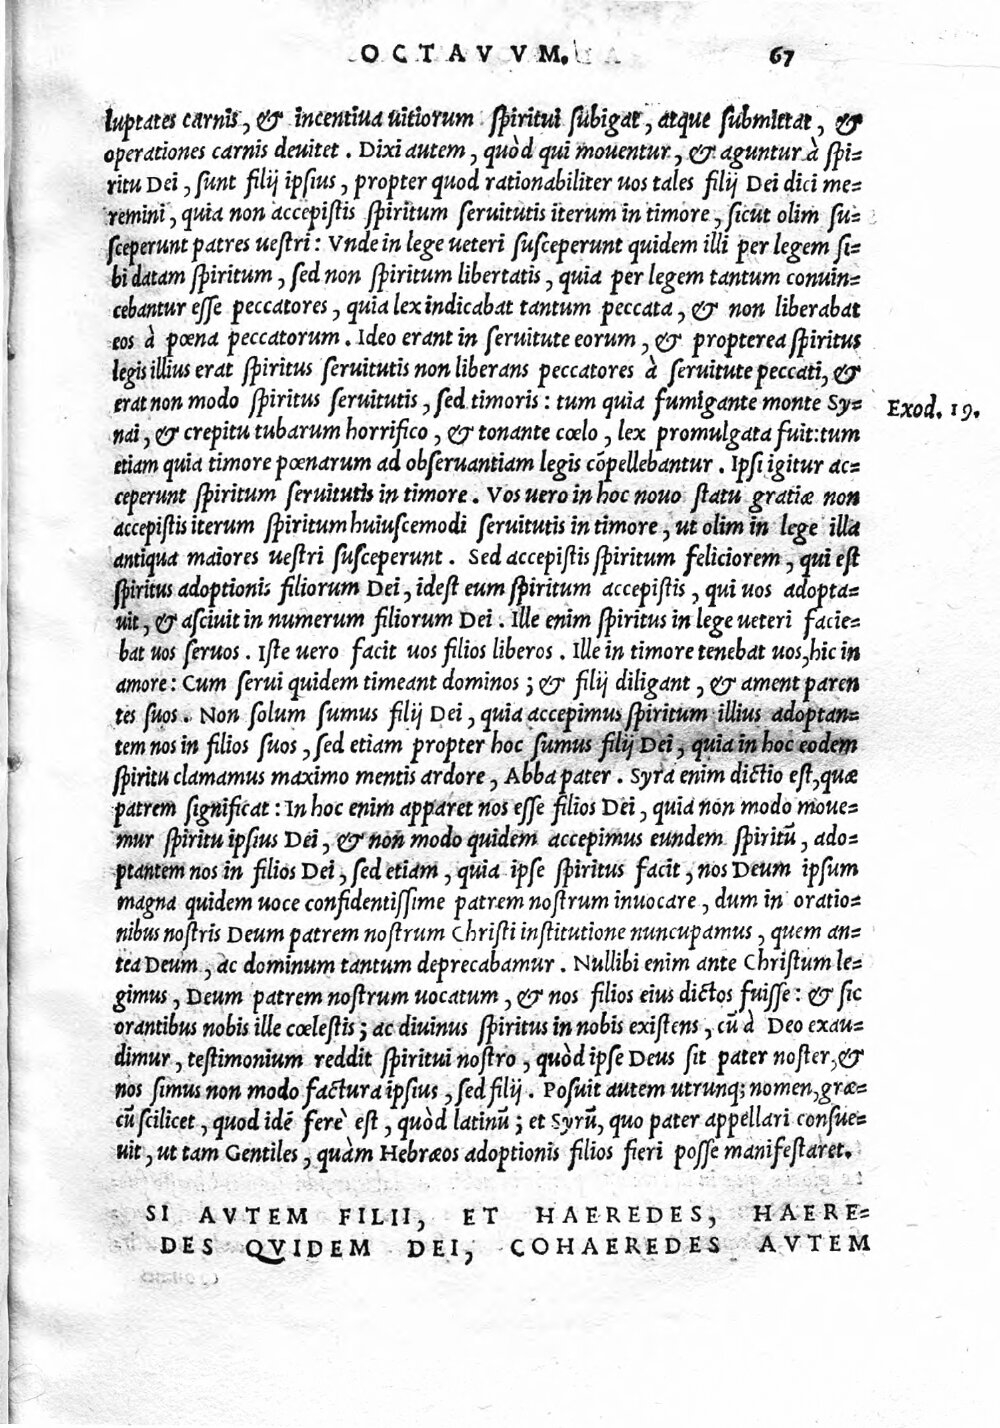 OCTAVVM. 67
luptates carnis, & incentiua uitiorum spiritui subigat, atque submittat, &
operationes carnis deuitet. Dixi autem, quòd qui mouentur, & aguntur à spi=
ritu Dei, sunt filij ipsius, propter quod rationabiliter uos tales filij Dei dici me=
remini, quia non accepistis spiritum seruitutis iterum in timore, sicut olim su=
sceperunt patres uestri: Vnde in lege ueteri susceperunt quidem illi per legem si=
bi datam spiritum, sed non spiritum libertatis, quia per legem tantum conuin=
cebantur esse peccatores, quia lex indicabat tantum peccata, & non liberabat
eos à pœna peccatorum. Ideo erant in seruitute eorum, & propterea spiritus
legis illius erat spiritus seruitutis non liberans peccatores à seruitute peccati, &
erat non modo spiritus seruitutis, sed timoris: tum quia fumigante monte Sy=
nai, & crepitu tubarum horrifico, & tonante cœlo, lex promulgata fuit: tum
etiam quia timore pœnarum ad obseruantiam legis cōpellebantur. Ipsi igitur ac=
ceperunt spiritum seruitutis in timore. Vos uero in hoc nouo statu gratiæ non
accepistis iterum spiritum huiuscemodi seruitutis in timore, ut olim in lege illa
antiqua maiores uestri susceperunt. Sed accepistis spiritum feliciorem, qui est
spiritus adoptionis filiorum Dei, idest eum spiritum accepistis, qui uos adopta=
uit, & asciuit in numerum filiorum Dei. Ille enim spiritus in lege ueteri facie=
bat uos seruos. Iste uero facit uos filios liberos. Ille in timore tenebat uos, hic in
amore: Cum serui quidem timeant dominos; & filij diligant, & ament paren
tes suos. Non solum sumus filij Dei, quia accepimus spiritum illius adoptan=
tem nos in filios suos, sed etiam propter hoc sumus filij Dei, quia in hoc eodem
spiritu clamamus maximo mentis ardore, Abba pater. Syra enim dictio est, quæ
patrem significat: In hoc enim apparet nos esse filios Dei, quia non modo moue=
mur spiritu ipsius Dei, & non modo quidem accepimus eundem spiritū, ado=
ptantem nos in filios Dei, sed etiam, quia ipse spiritus facit, nos Deum ipsum
magna quidem uoce confidentissime patrem nostrum inuocare, dum in oratio=
nibus nostris Deum patrem nostrum Christi institutione nuncupamus, quem an=
tea Deum, ac dominum tantum deprecabamur. Nullibi enim ante Christum le=
gimus, Deum patrem nostrum uocatum, & nos filios eius dictos fuisse: & sic
orantibus nobis ille cœlestis; ac diuinus spiritus in nobis existens, cū à Deo exau=
dimur, testimonium reddit spiritui nostro, quòd ipse Deus sit pater noster, &
nos simus non modo factura ipsius, sed filij. Posuit autem utrunq; nomen, græ=
cū scilicet, quod idē ferè est, quòd latinū; et Syrū, quo pater appellari consue=
uit, ut tam Gentiles, quàm Hebræos adoptionis filios fieri posse manifestaret.
Exod. 19.
SI AVTEM FILII, ET HAEREDES, HAERE=
DES QVIDEM DEI, COHAEREDES AVTEM